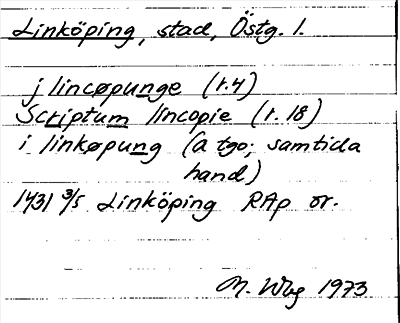 Linköping, stad, Östg. l.
j lincøpunge (r. 4)
Scriptum lincopie (r. 18)
i linkøpung (a tgo; samtida
hand)
1431 3/5 Linköping RAp or.
M. Wbg 1973